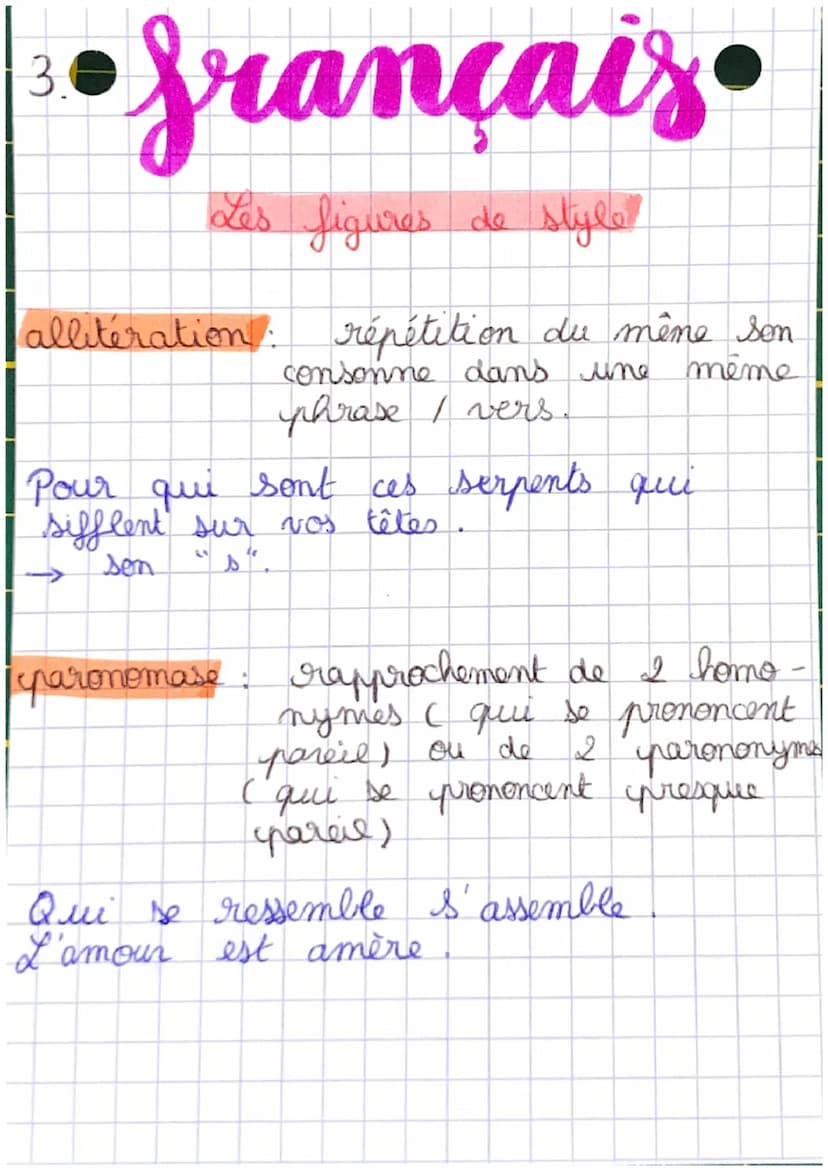 3. français
Les figures de style
allitération : répétition du même son
consonne dans une même
phrase / vers.
Pour qui sont ces serpents qui
sifflent sur vos têtes.
→ son "s".
paronomase : rapprochement de 2 homo-
nymes ( qui se prononcent
pareil) ou de 2 parononymes
( qui se prononcent presque
pareil)
Qui se ressemble s'assemble.
L'amour est amère.